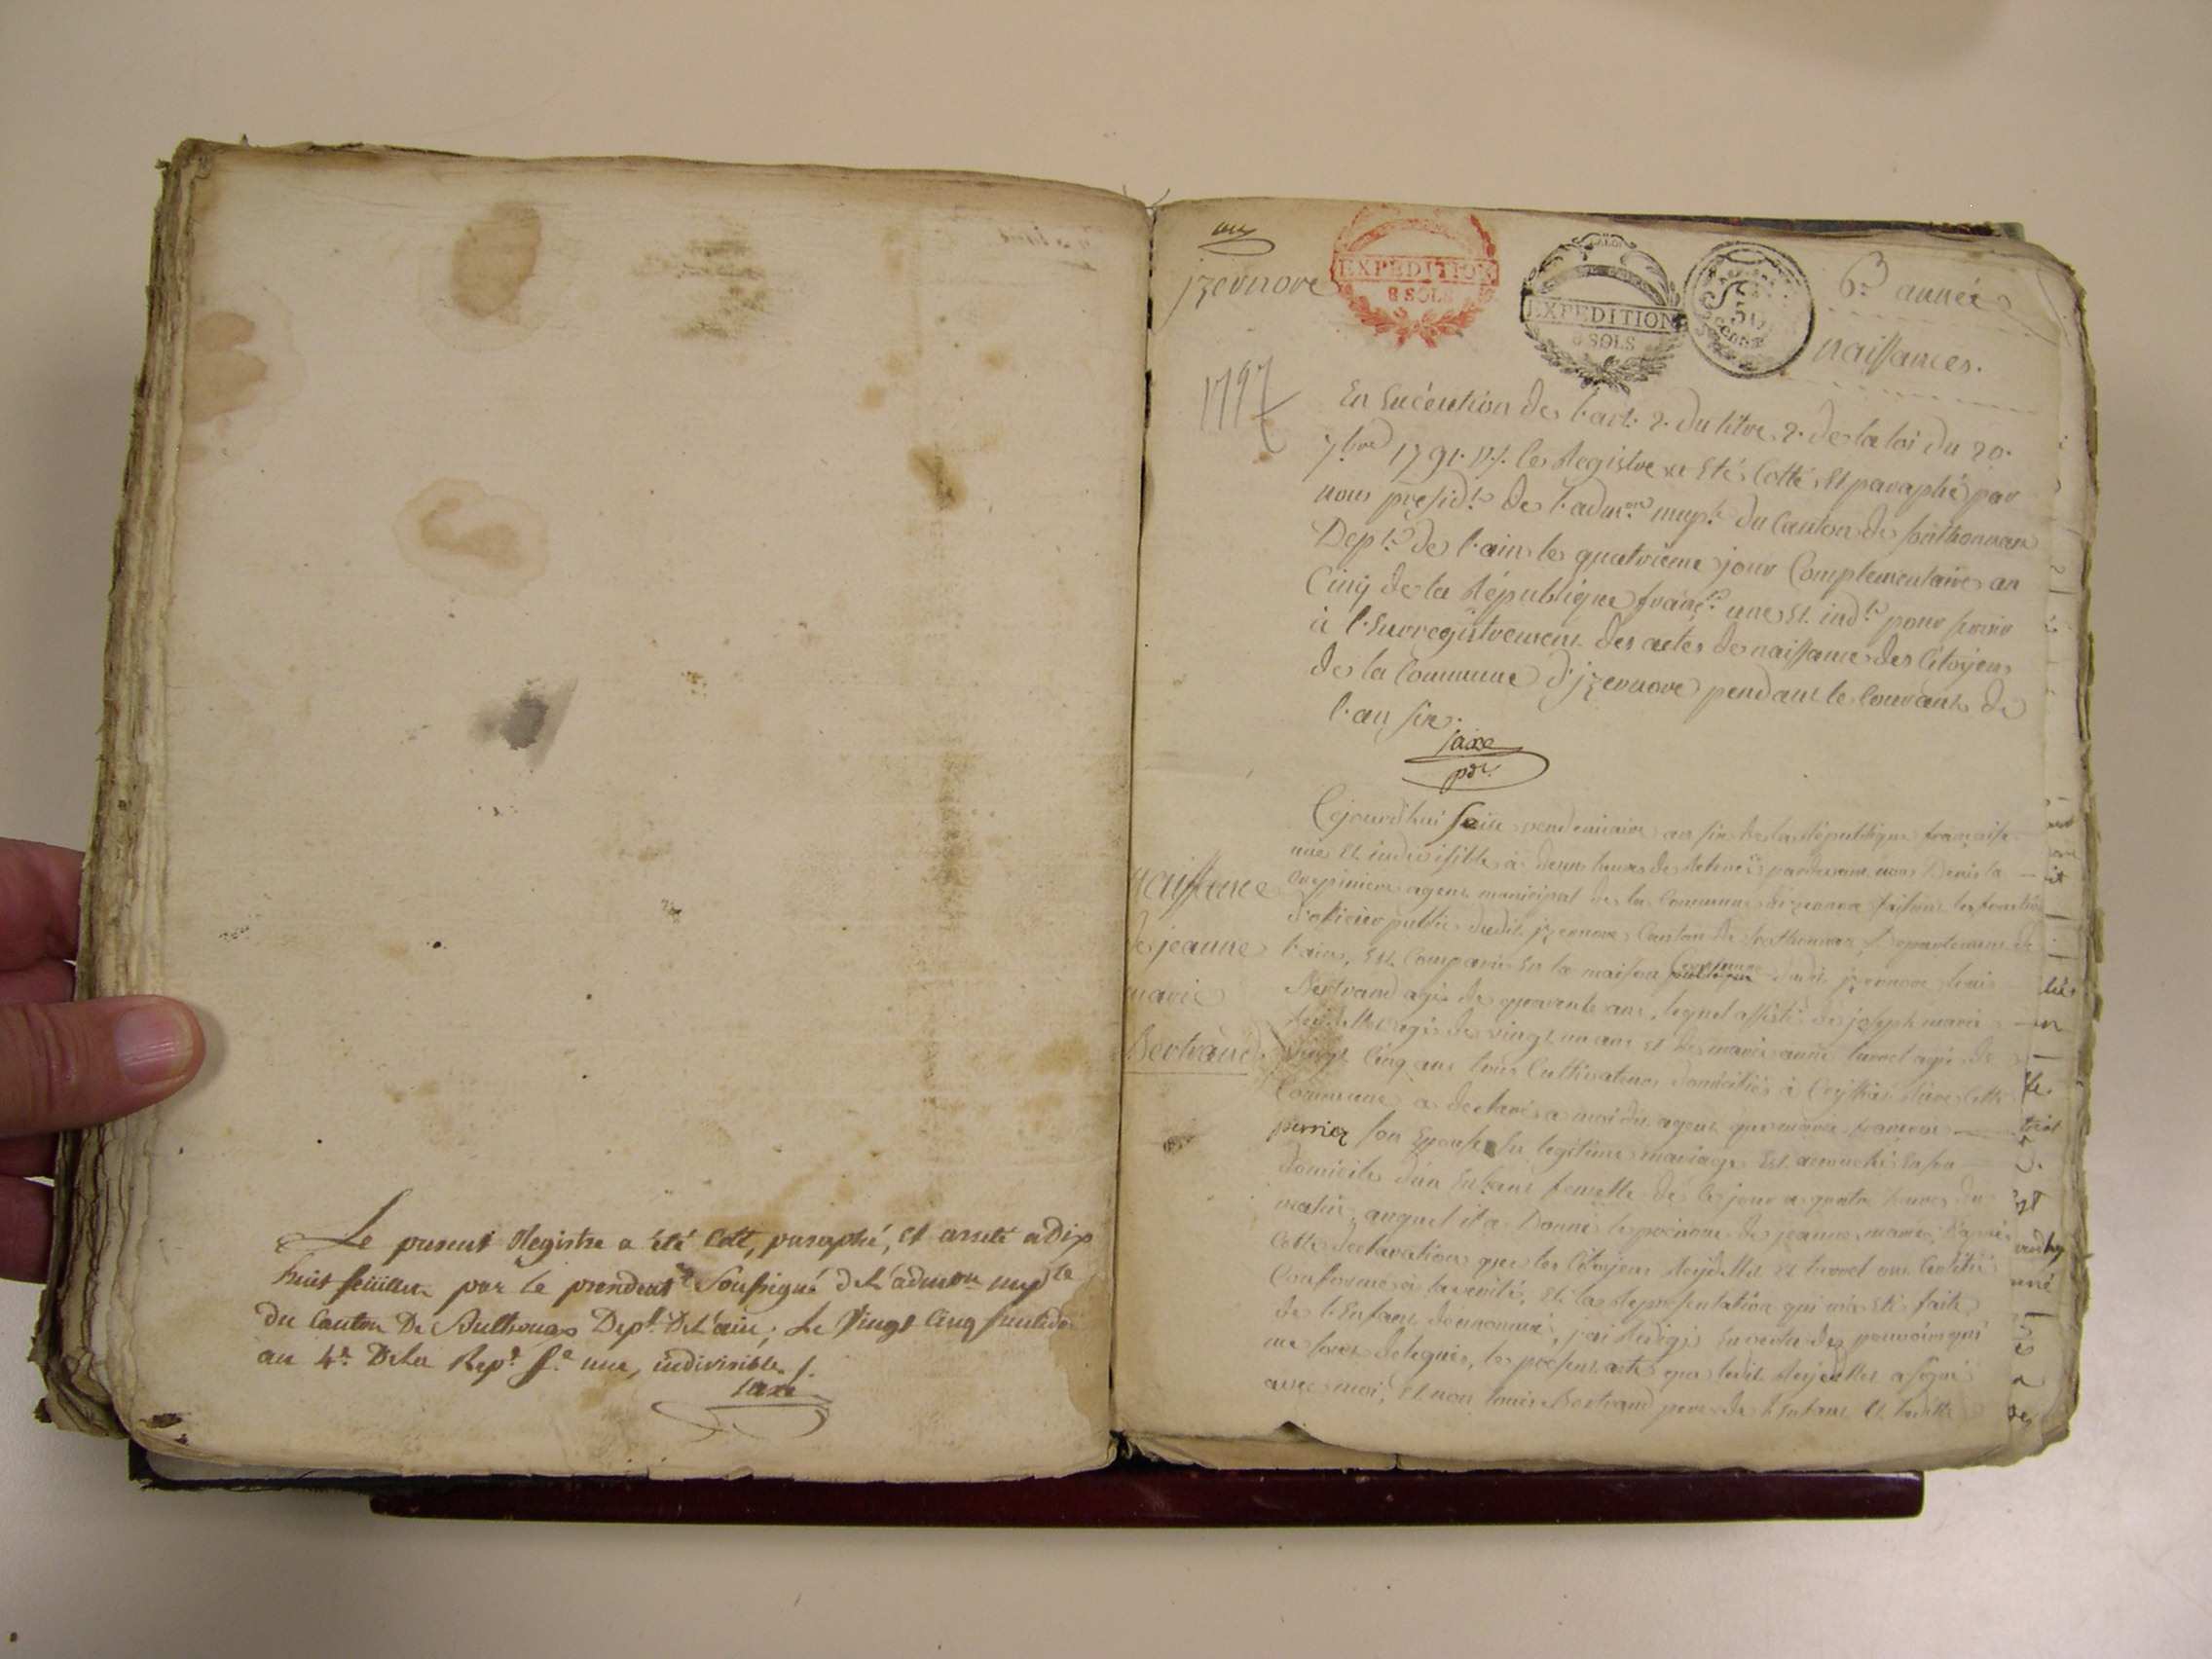 Le present Registre a été Coté, paraphé, et arreté a dix
huit feuillets par le president Soussigné de L'admon mup.le
du Canton De Sulthonas Dept. De L'ain; Le Vingt Cinq
an 4e. De la Rep.e f.e une, indivisible /.
Jaxe
un
jzernore
EXPEDITION
8 SOLS
EXPEDITION
8 SOLS
50
Cent
6e année
naissances.
1797
En Execution de l'art. 2. du titre 2. de la loi du 20.
7bre 1791. V.S. le Registre a Eté Cotté Et paraphé par
nous presidt. de l'admon mup.le du Canton de
Dept. de l'ain le quatrieme jour Complementaire an
Cinq de la République franç.e une Et ind.le pour servir
à l'Enregistrement des actes de naissance des Citoyens
de la Commune d'jzernore pendant le Courant de
l'an six.
Jaxe
pdt.
naissance
de jeanne
marie
Bertrand
Cejourd'hui seize vendemiaire an six de la République française
une Et indivisible à deux heures de relevée pardevant nous Denis la
crepiniere agent municipal de la Commune d'izernore faisant les fonctions
d'officier public dudit jzernore Canton de Departement de
l'ain, Est Comparu En la maison Commune dudit jzernore louis
Bertrand agé de quarante ans, lequel assisté de joseph marie
Reydellet agé de vingt un ans et de marie anne agée de
vingt Cinq ans tous Cultivateurs domiciliés à Ceyssiat dite
Commune a declaré a moi dit agent que marie francoise
perrier son Epouse En legitime mariage Est accouchée En son
domicile d'un Enfant femelle de ce jour a quatre heures du
matin, auquel il a Donné le prénom de jeanne marie, D'apres
Cette declaration que les Citoyens Reydellet et ont Certifié
Conforme à la verité, Et la Representation qui m'a Eté faite
de l'Enfant denommé, j'ai Redigé En vertu des pouvoirs qui
me sont delegués, le present acte que ledit Reydellet a signé
avec moi, Et non louis Bertrand pere de l'Enfant Et ladite